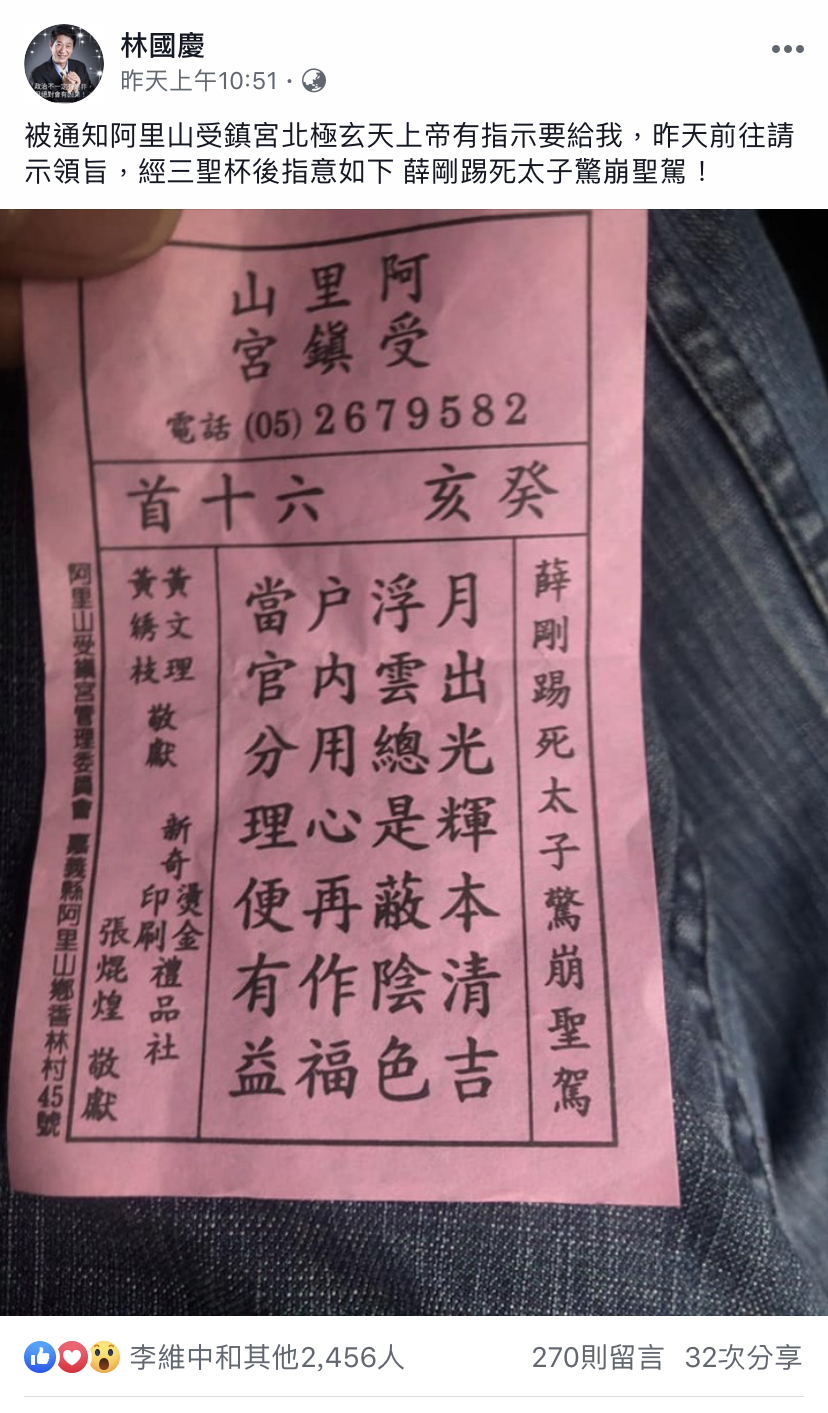 林國慶
昨天上午10:51
被通知阿里山受鎮宮北極玄天上帝有指示要給我，昨天前往請
示領旨，經三聖杯後指意如下 薛剛踢死太子驚崩聖駕！
阿里山
受鎮宮
電話 (05) 2679582
癸亥 六十首
薛剛踢死太子驚崩聖駕
月出光輝本清吉
浮雲總是蔽陰色
户内用心再作福
當官分理便有益
黃文理
黃綉枝
敬獻
新奇燙金
印刷禮品社
張焜煌 敬獻
阿里山受鎮宮管理委員會 嘉義縣阿里山鄉香林村45號
李維中和其他2,456人
270則留言 32次分享